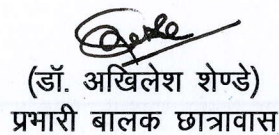 (डॉ. अखिलेश शेण्डे)
प्रभारी बालक छात्रावास